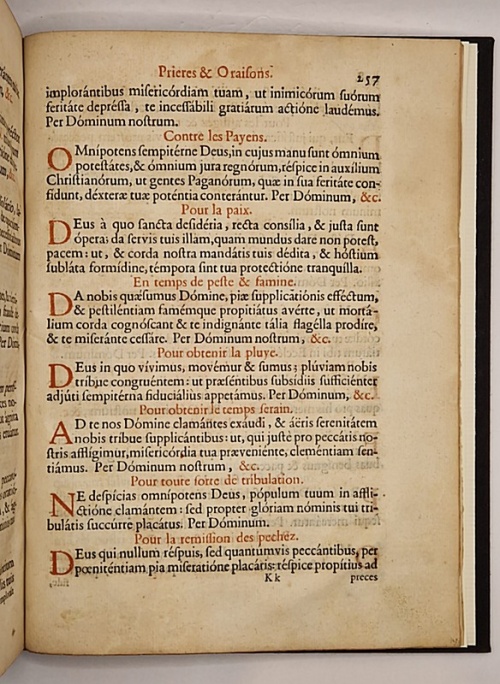 Prieres & Oraisons. 257
implorántibus misericórdiam tuam, ut inimicórum suórum
feritáte depréssa, te incessábili gratiárum actióne laudémus.
Per Dóminum nostrum.
Contre les Payens.
OMnípotens sempitérne Deus, in cujus manu sunt ómnium
potestátes, & ómnium jura regnórum, réspice in auxílium
Christianórum, ut gentes Paganórum, quæ in sua feritáte con-
fidunt, déxteræ tuæ poténtia conterántur. Per Dóminum, &c.
Pour la paix.
DEus à quo sancta desidéria, recta consília, & justa sunt
ópera; da servis tuis illam, quam mundus dare non potest,
pacem: ut, & corda nostra mandátis tuis dédita, & hóstium
subláta formídine, témpora sint tua protectióne tranquílla.
En temps de peste & famine.
DA nobis quæsumus Dómine, piæ supplicatiónis efféctum,
& pestiléntiam famémque propitiátus avérte, ut mortá-
lium corda cognóscant & te indignánte tália flagélla prodíre,
& te miseránte cessáre. Per Dóminum nostrum, &c.
Pour obtenir la pluye.
DEus in quo vívimus, movémur & sumus; plúviam nobis
tríbue congruéntem: ut præséntibus subsídiis sufficiénter
adjúti sempitérna fiduciálius appetámus. Per Dóminum, &c.
Pour obtenir le temps serain.
AD te nos Dómine clamántes exáudi, & áëris serenitátem
nobis tríbue supplicántibus: ut, qui justè pro peccátis no-
stris afflígimur, misericórdia tua præveniénte, cleméntiam sen-
tiámus. Per Dóminum nostrum, &c.
Pour toute sorte de tribulation.
NE despícias omnípotens Deus, pópulum tuum in affli-
ctióne clamántem: sed propter glóriam nóminis tui tri-
bulátis succúrre placátus. Per Dóminum.
Pour la remission des pechez.
DEus qui nullum réspuis, sed quantumvis peccántibus, per
pœniténtiam pia miseratióne placáris: réspice propítius ad
Kk preces